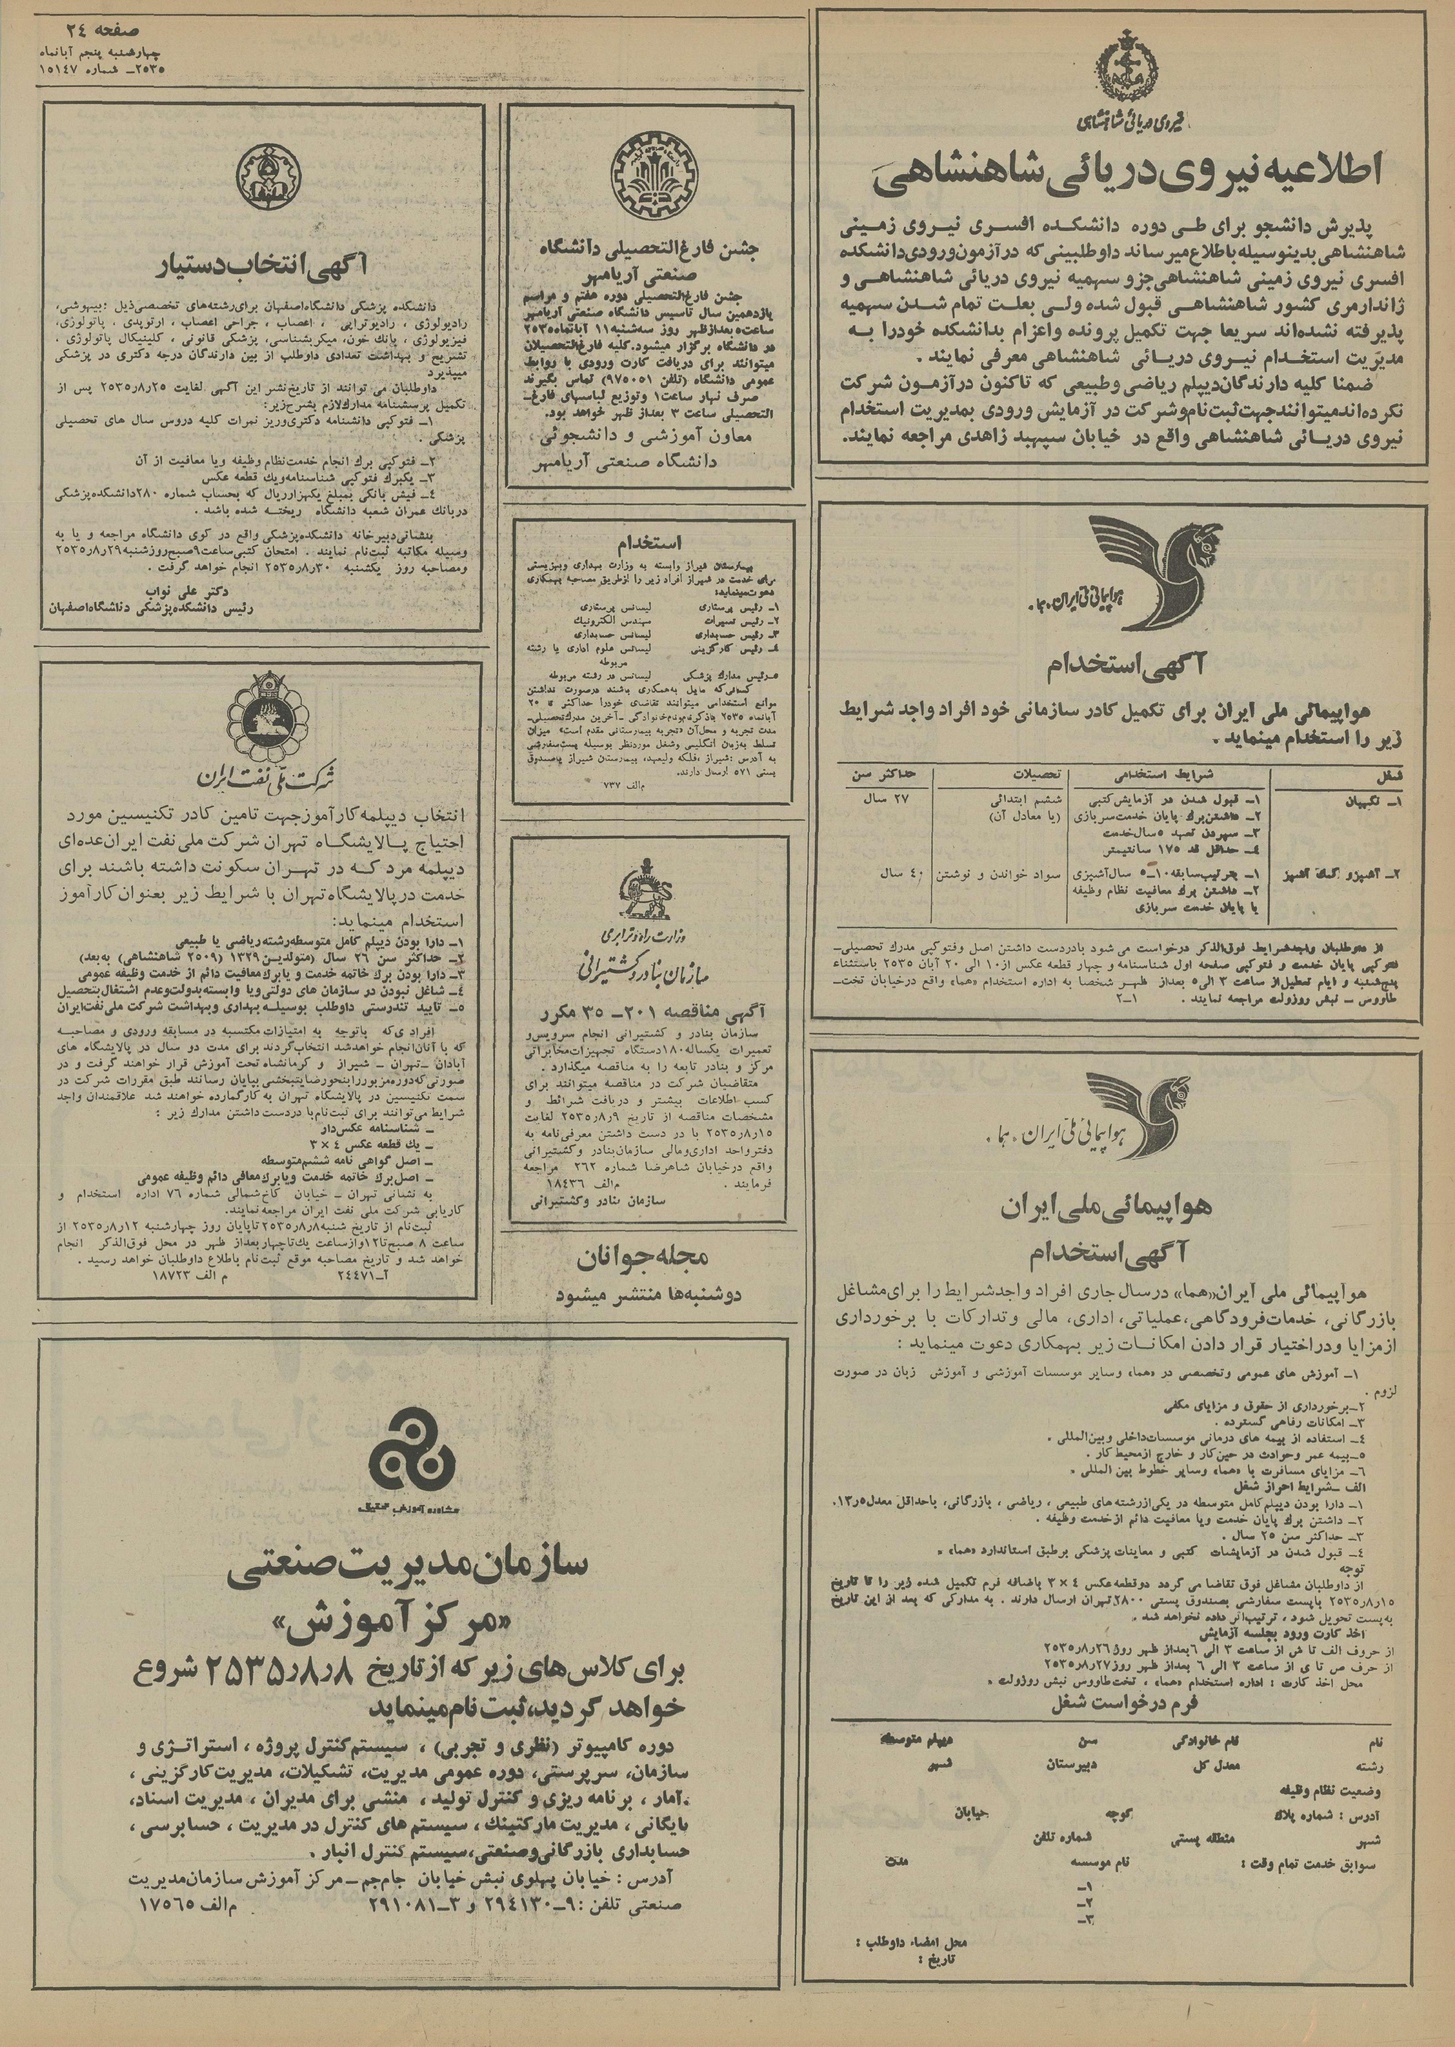 صفحه ۲۴
چهارشنبه پنجم آبانماه
۲۵۳۵ـ شماره ۱۵۱۴۷
نیروی دریائی شاهنشاهی
اطلاعیه نیروی دریائی شاهنشاهی
پذیرش دانشجو برای طی دوره دانشکده افسری نیروی زمینی
شاهنشاهی بدینوسیله باطلاع میرساند داوطلبینی که درآزمون ورودی دانشکده
افسری نیروی زمینی شاهنشاهی جزو سهمیه نیروی دریائی شاهنشاهی و
ژاندارمری کشور شاهنشاهی قبول شده ولی بعلت تمام شدن سهمیه
پذیرفته نشده‌اند سریعا جهت تکمیل پرونده واعزام بدانشکده خودرا به
مدیریت استخدام نیروی دریائی شاهنشاهی معرفی نمایند .
ضمنا کلیه دارندگان دیپلم ریاضی وطبیعی که تاکنون درآزمون شرکت
نکرده‌اند میتوانند جهت ثبت نام وشرکت در آزمایش ورودی بمدیریت استخدام
نیروی دریائی شاهنشاهی واقع در خیابان سپهبد زاهدی مراجعه نمایند.
هواپیمائی ملی ایران . هما .
آگهی استخدام
هواپیمائی ملی ایران برای تکمیل کادر سازمانی خود افراد واجد شرایط
زیر را استخدام مینماید .
شغل شرایط استخدامی تحصیلات حداکثر سن
۱ـ نگهبان ۱ـ قبول شدن در آزمایش کتبی ششم ابتدائی ۲۷ سال
۲ـ داشتن برگ پایان خدمت سربازی (یا معادل آن)
۳ـ سپردن تعهد ۵ سال خدمت
۴ـ حداقل قد ۱۷۵ سانتیمتر
۲ـ آشپز و کمک آشپز ۱ـ بترتیب سابقه ۱۰ـ۵ سال آشپزی سواد خواندن و نوشتن ۴۰ سال
۲ـ داشتن برگ معافیت نظام وظیفه
یا پایان خدمت سربازی
از داوطلبان واجد شرایط فوق‌الذکر درخواست می شود بادردست داشتن اصل وفتوکپی مدرک تحصیلی ـ
فتوکپی پایان خدمت و فتوکپی صفحه اول شناسنامه و چهار قطعه عکس از ۱۰ الی ۲۰ آبان ۲۵۳۵ باستثناء
پنجشنبه و ایام تعطیل از ساعت ۳ الی ۵ بعداز ظهر شخصا به اداره استخدام «هما» واقع درخیابان تخت‌ـ
طاووس ـ نبش روزولت مراجعه نمایند . ۱ـ۲
هواپیمائی ملی ایران . هما .
هواپیمائی ملی ایران
آگهی استخدام
هواپیمائی ملی ایران «هما» درسال جاری افراد واجد شرایط را برای مشاغل
بازرگانی، خدمات فرودگاهی، عملیاتی، اداری، مالی وتدارکات با برخورداری
ازمزایا ودراختیار قرار دادن امکانات زیر بهمکاری دعوت مینماید :
۱ـ آموزش های عمومی وتخصصی در «هما» وسایر موسسات آموزشی و آموزش زبان در صورت
لزوم .
۲ـ برخورداری از حقوق و مزایای مکفی
۳ـ امکانات رفاهی گسترده .
۴ـ استفاده از بیمه های درمانی موسسات داخلی وبین‌المللی .
۵ـ بیمه عمر وحوادث در حین کار و خارج ازمحیط کار .
۶ـ مزایای مسافرت با «هما» وسایر خطوط بین المللی .
الف ـ شرایط احراز شغل
۱ـ دارا بودن دیپلم کامل متوسطه در یکی ازرشته های طبیعی ، ریاضی ، بازرگانی، باحداقل معدل ۱۳ر۵.
۲ـ داشتن برگ پایان خدمت ویا معافیت دائم ازخدمت وظیفه .
۳ـ حداکثر سن ۲۵ سال .
۴ـ قبول شدن در آزمایشات کتبی و معاینات پزشکی برطبق استاندارد «هما» .
توجه
از داوطلبان مشاغل فوق تقاضا می گردد دوقطعه عکس ۴×۳ باضافه فرم تکمیل شده زیر را تا تاریخ
۱۵ر۸ر۲۵۳۵ باپست سفارشی بصندوق پستی ۲۸۰۰ تهران ارسال دارند . به مدارکی که بعد از این تاریخ
به پست تحویل شود ، ترتیب اثر داده نخواهد شد .
اخذ کارت ورود بجلسه آزمایش
از حروف الف تا ش از ساعت ۳ الی ۶ بعداز ظهر روز ۲۶ر۸ر۲۵۳۵
از حرف ص تا ی از ساعت ۳ الی ۶ بعداز ظهر روز ۲۷ر۸ر۲۵۳۵
محل اخذ کارت : اداره استخدام «هما» ، تخت طاووس نبش روزولت .
فرم درخواست شغل
نام نام خانوادگی سن دیپلم متوسطه
رشته معدل کل دبیرستان شهر
وضعیت نظام وظیفه
آدرس : شماره پلاک کوچه خیابان
شهر منطقه پستی شماره تلفن
سوابق خدمت تمام وقت : نام موسسه مدت
۱ـ
۲ـ
۳ـ
محل امضاء داوطلب :
تاریخ :
جشن فارغ‌التحصیلی دانشگاه
صنعتی آریامهر
جشن فارغ‌التحصیلی دوره هفتم و مراسم
یازدهمین سال تاسیس دانشگاه صنعتی آریامهر
ساعت ۵ بعدازظهر روز سه‌شنبه ۱۱ آبانماه ۲۵۳۵
در دانشگاه برگزار میشود. کلیه فارغ‌التحصیلان
میتوانند برای دریافت کارت ورودی با روابط
عمومی دانشگاه (تلفن ۹۷۵۰۵۱) تماس بگیرند
صرف نهار ساعت ۱ وتوزیع لباسهای فارغ‌ـ
التحصیلی ساعت ۳ بعداز ظهر خواهد بود.
معاون آموزشی و دانشجوئی
دانشگاه صنعتی آریامهر
استخدام
بیمارستان شیراز وابسته به وزارت بهداری وبهزیستی
برای خدمت در شیراز افراد زیر را ازطریق مصاحبه بهمکاری
دعوت مینماید:
۱ـ رئیس پرستاری لیسانس پرستاری
۲ـ رئیس تعمیرات مهندس الکترونیک
۳ـ رئیس حسابداری لیسانس حسابداری
۴ـ رئیس کارگزینی لیسانس علوم اداری یا رشته
مربوطه
۵ـ رئیس مدارک پزشکی لیسانس در رشته مربوطه
کسانی‌که مایل به‌همکاری باشند درصورت نداشتن
موانع استخدامی میتوانند تقاضای خودرا حداکثر تا ۲۰
آبانماه ۲۵۳۵ باذکر نام ونام خانوادگی ـ آخرین مدرک تحصیلی‌ـ
مدت تجربه و محل آن «تجربه بیمارستانی مقدم است» میزان
تسلط به‌زبان انگلیسی وشغل موردنظر بوسیله پست سفارشی
به آدرس : شیراز ،فلکه ولیعهد، بیمارستان شیراز یا صندوق
پستی ۵۷۱ ارسال دارند.
م‌الف ۷۳۷
وزارت راه و ترابری
سازمان بنادر و کشتیرانی
آگهی مناقصه ۲۰۱ـ ۳۵ مکرر
سازمان بنادر و کشتیرانی انجام سرویس و
تعمیرات یکساله ۱۸۰ دستگاه تجهیزات مخابراتی
مرکز و بنادر تابعه را به مناقصه میگذارد .
متقاضیان شرکت در مناقصه میتوانند برای
کسب اطلاعات بیشتر و دریافت شرائط و
مشخصات مناقصه از تاریخ ۹ر۸ر۲۵۳۵ لغایت
۱۵ر۸ر۲۵۳۵ با در دست داشتن معرفی‌نامه به
دفتر واحد اداری ومالی سازمان بنادر وکشتیرانی
واقع درخیابان شاهرضا شماره ۲۶۲ مراجعه
فرمایند . م‌الف ۱۸۴۳۶
سازمان بنادر وکشتیرانی
مجله جوانان
دوشنبه‌ها منتشر میشود
آگهی انتخاب دستیار
دانشکده پزشکی دانشگاه اصفهان برای رشته‌های تخصصی ذیل : بیهوشی،
رادیولوژی ، رادیوتراپی ، اعصاب ، جراحی اعصاب ، ارتوپدی ، پاتولوژی،
فیزیولوژی ، بانک خون، میکربشناسی، پزشکی قانونی ، کلینیکال پاتولوژی ،
تشریح و بهداشت تعدادی داوطلب از بین دارندگان درجه دکتری در پزشکی
میپذیرد
داوطلبان می توانند از تاریخ نشر این آگهی لغایت ۲۵ر۸ر۲۵۳۵ پس از
تکمیل پرسشنامه مدارک لازم بشرح زیر:
۱ـ فتوکپی دانشنامه دکتری وریز نمرات کلیه دروس سال های تحصیلی
پزشکی .
۲ـ فتوکپی برگ انجام خدمت نظام وظیفه ویا معافیت از آن
۳ـ یکبرگ فتوکپی شناسنامه ویک قطعه عکس
۴ـ فیش بانکی بمبلغ یکهزار ریال که بحساب شماره ۲۸۰ دانشکده پزشکی
دربانک عمران شعبه دانشگاه ریخته شده باشد .
بنشانی دبیرخانه دانشکده پزشکی واقع در کوی دانشگاه مراجعه و یا به
وسیله مکاتبه ثبت نام نمایند . امتحان کتبی ساعت ۹ صبح روز شنبه ۲۹ر۸ر۲۵۳۵
ومصاحبه روز یکشنبه ۳۰ر۸ر۲۵۳۵ انجام خواهد گرفت .
دکتر علی نواب
رئیس دانشکده پزشکی دنانشگاه اصفهان
شرکت ملی نفت ایران
انتخاب دیپلمه کارآموز جهت تامین کادر تکنیسین مورد
احتیاج پالایشگاه تهران شرکت ملی نفت ایران عده‌ای
دیپلمه مرد که در تهران سکونت داشته باشند برای
خدمت در پالایشگاه تهران با شرایط زیر بعنوان کارآموز
استخدام مینماید:
۱ـ دارا بودن دیپلم کامل متوسطه رشته ریاضی یا طبیعی
۲ـ حداکثر سن ۲۶ سال (متولدین ۱۳۲۹ (۲۵۰۹ شاهنشاهی) به‌بعد)
۳ـ دارا بودن برگ خاتمه خدمت و یابرگ معافیت دائم از خدمت وظیفه عمومی
۴ـ شاغل نبودن در سازمان های دولتی ویا وابسته بدولت وعدم اشتغال بتحصیل
۵ـ تایید تندرستی داوطلب بوسیله بهداری وبهداشت شرکت ملی نفت ایران
افرادی که باتوجه به امتیازات مکتسبه در مسابقه ورودی و مصاحبه
که با آنان انجام خواهد شد انتخاب گردند برای مدت دو سال در پالایشگاه های
آبادان ـ تهران ـ شیراز و کرمانشاه تحت آموزش قرار خواهند گرفت و در
صورتی‌که دوره مزبور را بنحو رضایتبخشی بپایان رسانند طبق مقررات شرکت در
سمت تکنیسین در پالایشگاه تهران به کارگمارده خواهند شد علاقمندان واجد
شرایط می‌توانند برای ثبت نام با دردست داشتن مدارک زیر :
ـ شناسنامه عکس‌دار
ـ یک قطعه عکس ۴ × ۳
ـ اصل گواهی نامه ششم متوسطه
ـ اصل برگ خاتمه خدمت ویابرگ معافی دائم وظیفه عمومی
به نشانی تهران ـ خیابان کاخ شمالی شماره ۷۶ اداره استخدام و
کاریابی شرکت ملی نفت ایران مراجعه نمایند.
ثبت‌نام از تاریخ شنبه ۸ر۸ر۲۵۳۵ تاپایان روز چهارشنبه ۱۲ر۸ر۲۵۳۵ از
ساعت ۸ صبح تا ۱۲ و از ساعت یک تا چهار بعداز ظهر در محل فوق‌الذکر انجام
خواهد شد و تاریخ مصاحبه موقع ثبت نام باطلاع داوطلبان خواهد رسید .
آـ۲۴۴۷۱ م الف ۱۸۷۲۳
مشاوره آموزش تحقیق
سازمان مدیریت صنعتی
«مرکز آموزش»
برای کلاس های زیر که از تاریخ ۸ر۸ر۲۵۳۵ شروع
خواهد گردید، ثبت نام مینماید
دوره کامپیوتر (نظری و تجربی) ، سیستم کنترل پروژه ، استراتژی و
سازمان، سرپرستی، دوره عمومی مدیریت، تشکیلات، مدیریت کارگزینی ،
آمار ، برنامه ریزی و کنترل تولید ، منشی برای مدیران ، مدیریت اسناد،
بایگانی ، مدیریت مارکتینک ، سیستم های کنترل در مدیریت ، حسابرسی ،
حسابداری بازرگانی وصنعتی، سیستم کنترل انبار .
آدرس : خیابان پهلوی نبش خیابان جام‌جم ـ مرکز آموزش سازمان مدیریت
صنعتی تلفن : ۹ـ۲۹۴۱۳۰ و ۳ـ۲۹۱۰۸۱ م‌الف ۱۷۵۶۵